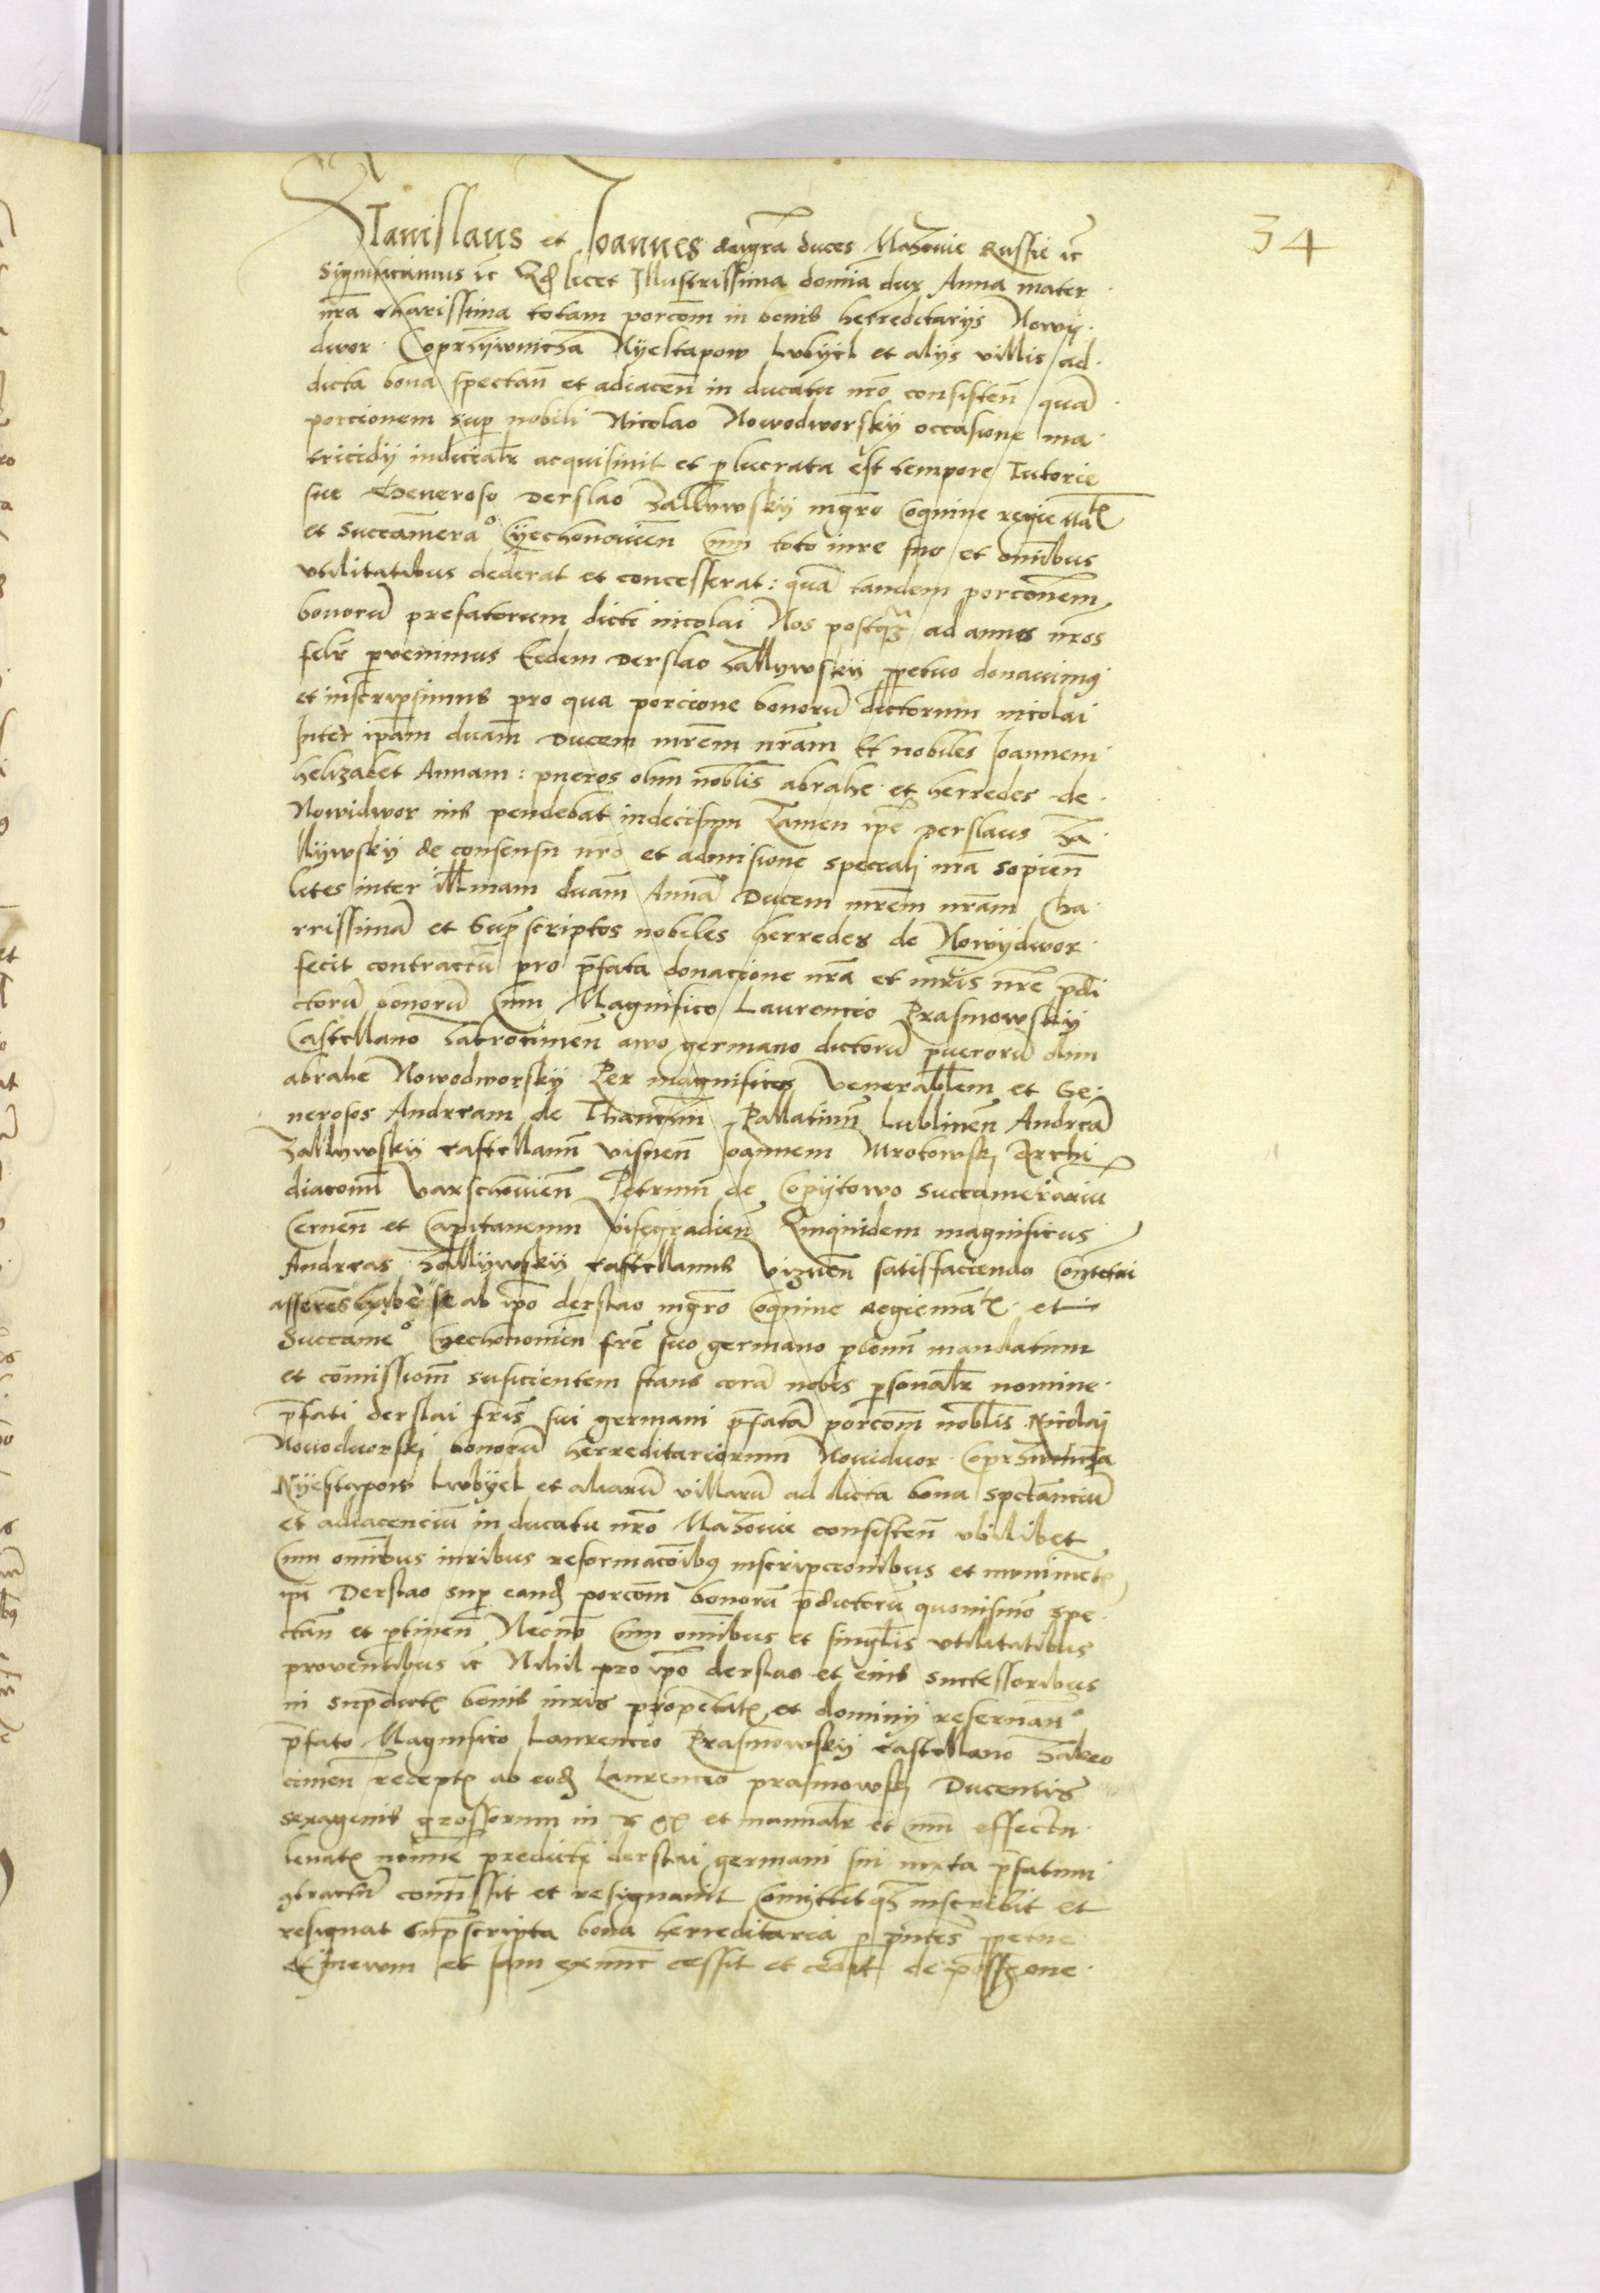 34
Stanislaus et Joannes dei gra duces Mazouie Russie ic
Significamus ic Qd licet Illustrissima domina dux Anna mater
nra charissima totam porcom in bonis hereditarys Nowy
dwor Coprzywnicza Nyeltapow Lubyel et alys villis ad
dicta bona spectan et adiacen in ducatu nro consisten quam
porcionem sup nobili Nicolao Nowodworsky occasione ma
tricidy iudicialr acquisiuit et plucrata est tempore Tutorie
sue Generoso Derslao Zallywsky mgro Coquine regie
et Succamera Cyechonowien Cum toto iure suo et omnibus
vtilitatibus dederat et concesserat: qua tandem porcionem
bonoru prefatorum dicti nicolai Nos postqz ad annos nros
felr pvenimus Eedem Derslao Zallywsky ppetuo donauimus
et inscripsimus pro qua porcione bonoru dictorum nicolai
Inter ipam duam Ducem mrem nram Et nobiles Joannem
helizabet Annam: pueros olim noblis abrahe et herredes de
Nowidwor ius pendebat indecisum Tamen ipe Derslaus Za
llywsky de consensu nro et admisione speciali nra sopien
lites inter Illmam duam Anna Ducem mrem nram Cha
rrissima et supscriptos nobiles herredes de Nowydwor
fecit contractu pro pfata donacione nra et mris nre pdi
ctoru bonoru Cum Magnifico Laurencio Prasmowsky
Castellano Zakrocimen awo germano dictoru pueroru olim
abrahe Nowodworsky Per magnificos venerabllem et Ge
nerosos Andream de Thanczin Pallatinu Lublinen Andrea
Zallywsky castellanu visnen Joannem Mrokowsk Archi
diaconu Varschouien Petrum de Copytowo succamerariu
Cernen et Capitaneum Visegradien Quiquidem magnificus
Andreas Zallywsky castellanus Viznen satisfaciendo
asserens habe se ab ipo derslao mgro Coquine Regie et
Succame Cyechonouien fre suo germano plenu mandatum
et comissionm suficientem stans cora nobis psonalr nomine
pfati derslai fris sui germani pfata porcom noblis Nicolai
Nouoduorski bonoru herreditariorum Nouiduor Coprzwnicza
Nyeltapow Lubyel et aliaru villaru ad dicta bona spectanciu
et adiacenciu in ducatu nro Mazouie consisten vbilibet
Cum omibus iuribus reformacoibus inscripcionibus et
ipi Derslao sup eand porcom bonoru pdictoru quouismo spe
ctan et ptinen Necno Cum omibus et singlis vtilitatibus
prouentibus ic Nihil pro ipo derslao et eius successoribus
in supdictis bonis iuris proprietatis et dominy reseruan
pfato Magnifico Laurencio Prasmowsky castellano Zakro
cimen receptis ab eod Laurencio prasmowsk Ducentis
sexagenis grossorum in et manualr et cum effectu
leuatis noime predicti derslai germani sui iuxta pfatum
gtractu comissit et resignauit Comittitqz inscribit et
resignat supscripta bona herreditaria p pntes ppetue
et Ineuum et iam exnunc cessit et cedit de possione